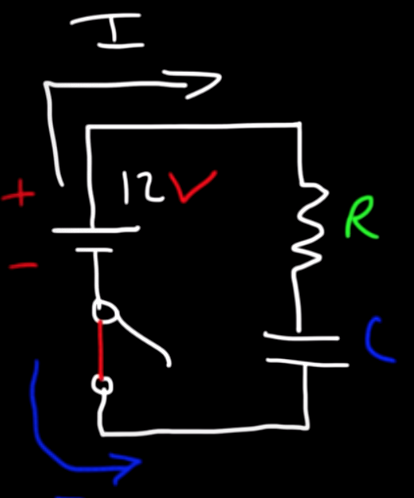 I
+
12V
R
-
C